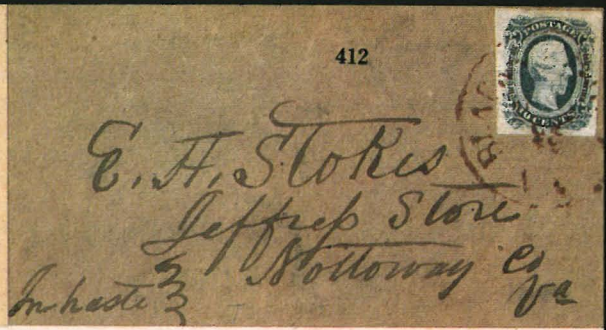 412
POSTAGE
TEN CENTS
BLACK
E. A. Stokes
Jeffress Store
Nottoway Co
Va
In haste